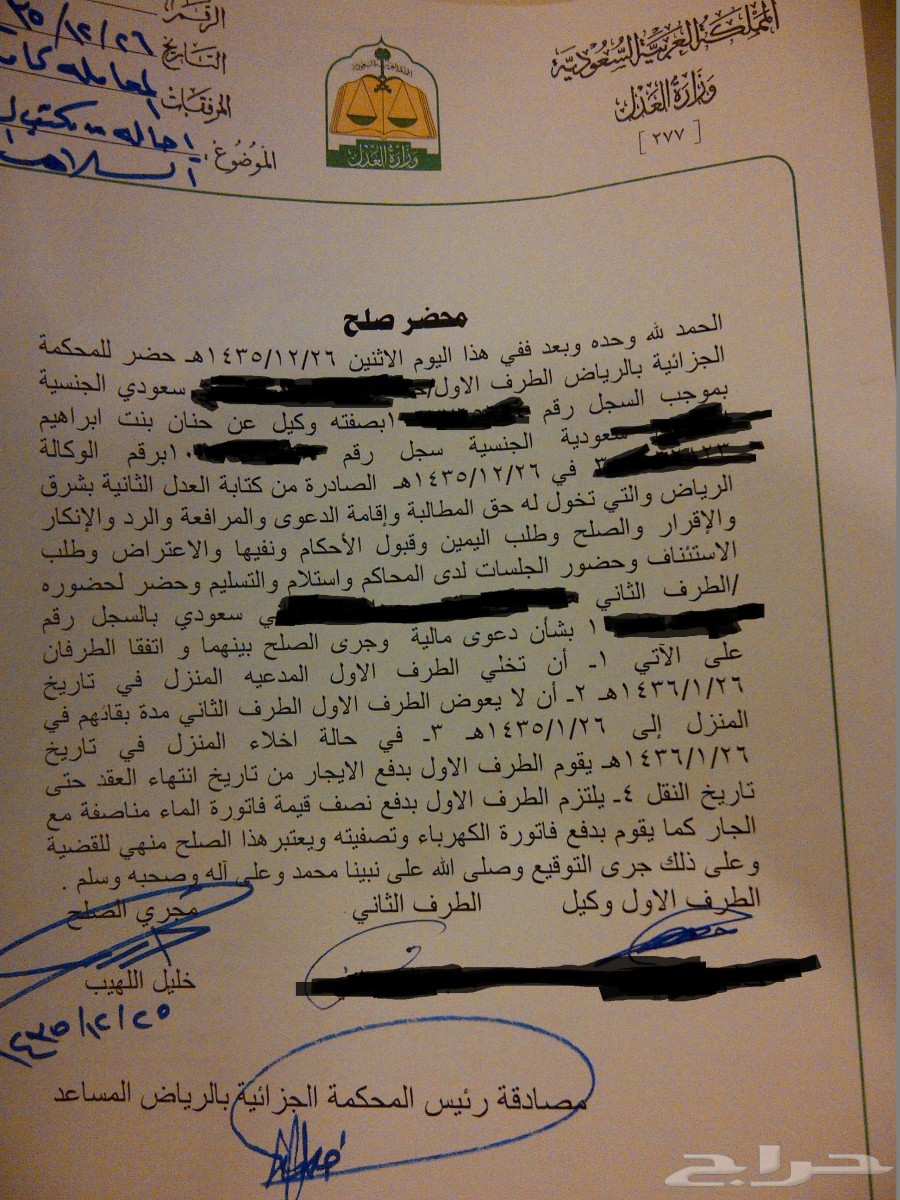 المملكة العربية السعودية
وزارة العدل
[ ٢٧٧ ]
وزارة العدل
الرقم
التاريخ ٣٥/١٢/٢٦
المرفقات
الموضوع
محضر صلح
الحمد لله وحده وبعد ففي هذا اليوم الاثنين ١٤٣٥/١٢/٢٦هـ حضر للمحكمة
الجزائية بالرياض الطرف الاول/ سعودي الجنسية
بموجب السجل رقم ١ بصفته وكيل عن حنان بنت ابراهيم
سعودية الجنسية سجل رقم ١٠ برقم الوكالة
في ١٤٣٥/١٢/٢٦هـ الصادرة من كتابة العدل الثانية بشرق
الرياض والتي تخول له حق المطالبة وإقامة الدعوى والمرافعة والرد والإنكار
والإقرار والصلح وطلب اليمين وقبول الأحكام ونفيها والاعتراض وطلب
الاستئناف وحضور الجلسات لدى المحاكم واستلام والتسليم وحضر لحضوره
/الطرف الثاني ي سعودي بالسجل رقم
١ بشأن دعوى مالية وجرى الصلح بينهما و اتفقا الطرفان
على الآتي ١ـ أن تخلي الطرف الاول المدعيه المنزل في تاريخ
١٤٣٦/١/٢٦هـ ٢ـ أن لا يعوض الطرف الاول الطرف الثاني مدة بقائهم في
المنزل إلى ١٤٣٥/١/٢٦هـ ٣ـ في حالة اخلاء المنزل في تاريخ
١٤٣٦/١/٢٦هـ يقوم الطرف الاول بدفع الايجار من تاريخ انتهاء العقد حتى
تاريخ النقل ٤ـ يلتزم الطرف الاول بدفع نصف قيمة فاتورة الماء مناصفة مع
الجار كما يقوم بدفع فاتورة الكهرباء وتصفيته ويعتبر هذا الصلح منهي للقضية
وعلى ذلك جرى التوقيع وصلى الله على نبينا محمد وعلى آله وصحبه وسلم .
الطرف الاول وكيل الطرف الثاني مجري الصلح
خليل اللهيب
١٤٣٥/١٢/٢٥
مصادقة رئيس المحكمة الجزائية بالرياض المساعد
حراج